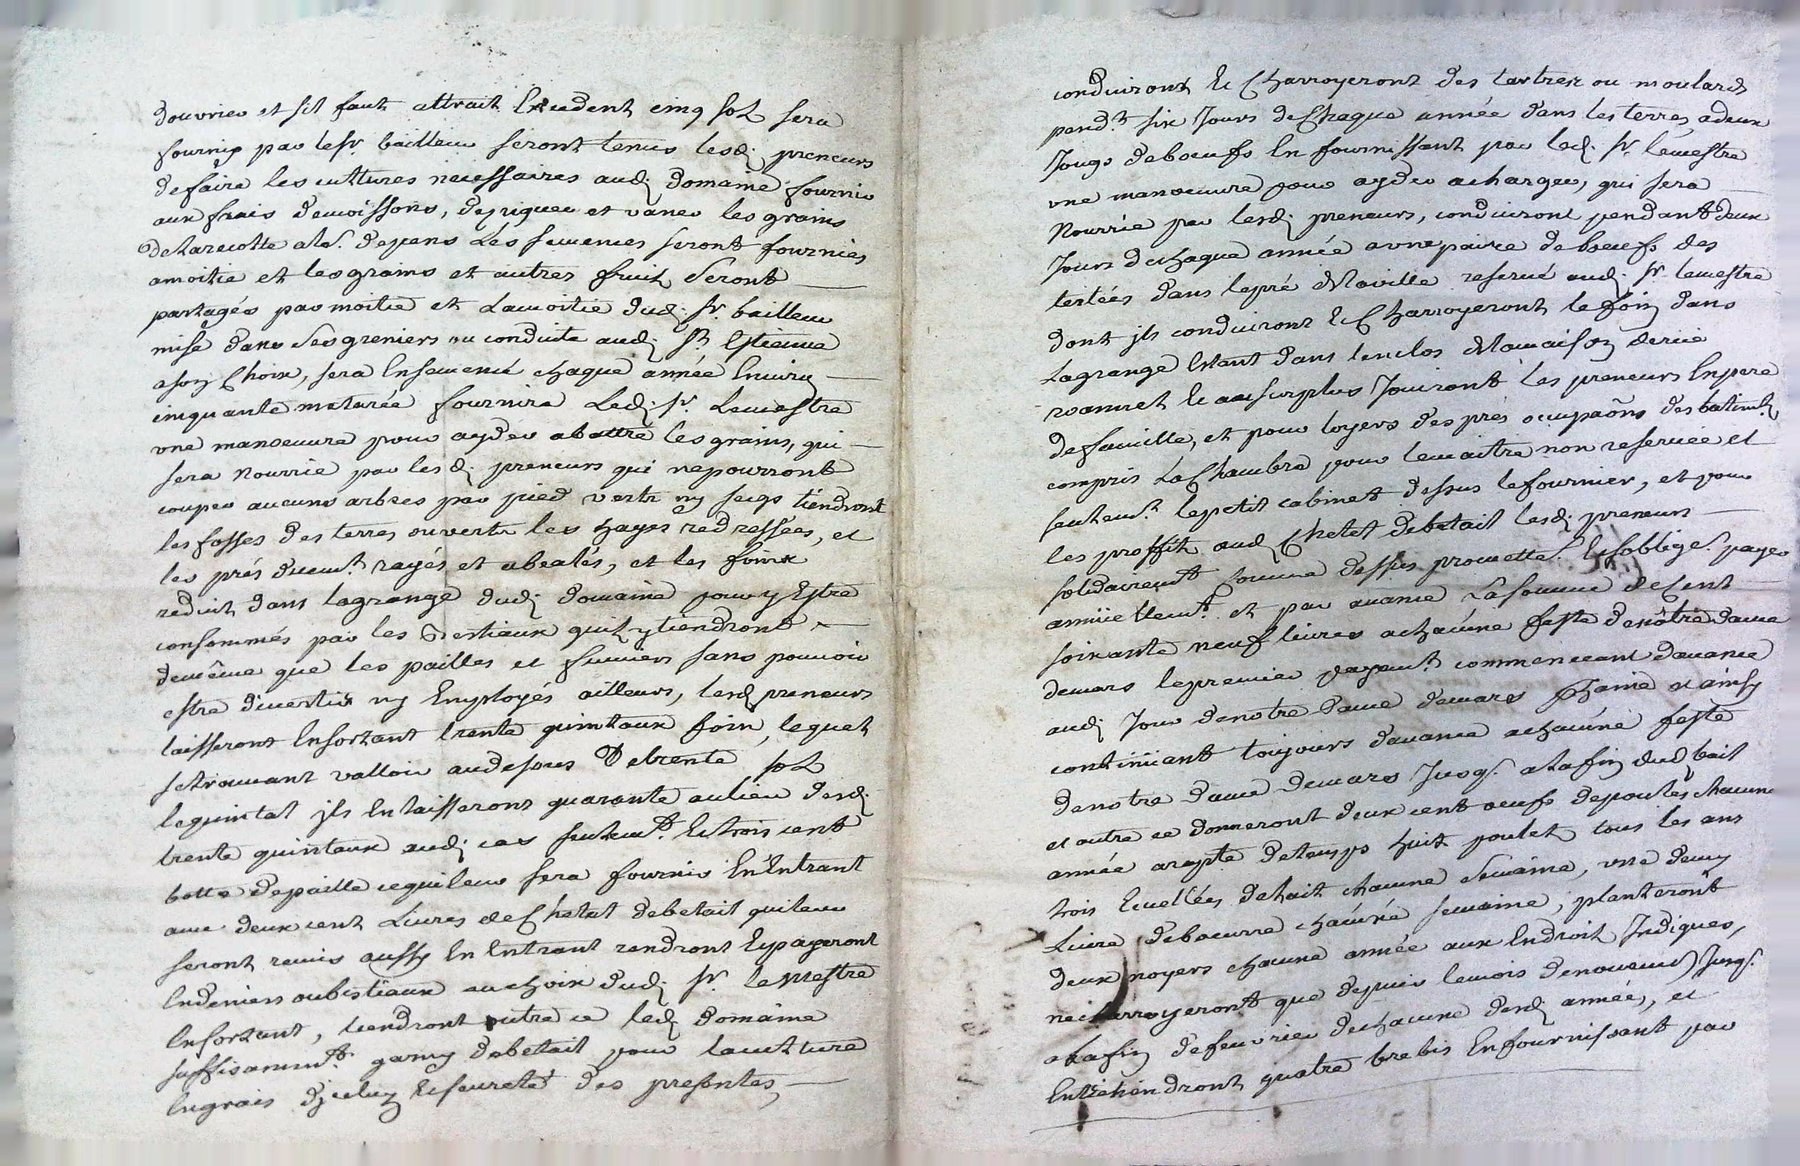 douvrier et sil faut attrait Excedent cinq sols sera
fournis par le sr. bailleur seront tenus lesd. preneurs
de faire les cultures necessaires aud. domaine fournir
aux frais de moissons, depiquer et vaner les grains
de la recolte a leurs depens Les semences seront fournies
a moitié et les grains et autres fruits seront
partagés par moitié et la moitié dud. sr. bailleur
mise dans ses greniers ou conduite aud. St. Estienne
a son Choix, sera Ensemencé chaque année Environ
cinquante meterée fournira Led. sr. Lemestre
une manoeuvre pour ayder abattre les grains, qui
sera Nourrie par lesd. preneurs qui ne pourront
couper aucuns arbres par pied verts ny secqs tiendront
les fosses des terres ouverts les hayes redressées, et
les prés duemt. rayés et abealés, et les foins
reduit dans lagrange dud. domaine pour y Estre
consommés par les Bestiaux quils y tiendront
de même que les pailles et fumiers sans pouvoir
estre divertis ny Employés ailleurs, lesd. preneurs
laisseront En sortant trente quintaux foin, lequel
se trouvant valloir audesous De trente sols
le quintal jls En laisserons quarante aulieu desd.
trente quintaux aud. cas seulemt. Et trois cent
bottes de paille ce qui leur sera fournis En Entrant
avec deux cent Livres de Chetal debetail qui leur
seront remis aussy En Entrant rendront Et payeront
En deniers ou bestiaux au choix dud. sr. Lemestre
En sortant, tiendront outre ce led. domaine
suffisammt. garny debetail pour la culture
Engrais diceluy Et seureté des presentes,
conduiront Et Charroyeront des tartres ou moulards
pendt. six Jours de Chaque année dans les terres a deux
Jougs de boeufs En fournissant par led. sr. lemestre
une manoeuvre pour ayder a charger, qui sera
Nourrie par lesd. preneurs, conduiront pendant deux
Jours de chaque année avec une paire de boeufs des
dans le pré reservé aud. sr. lemestre
dont jls conduiront Et Charroyeront le foin dans
Lagrange Estant dans lenclos
Et au surplus Jouiront Les preneurs En pere
de famille, et pour loyers des prés occupaõns des batimts.
compris La Chambre pour le maitre non reservée et
seulemt. le petit cabinet dessus le fournier, et pour
les proffits aud. Chetel de betail lesd. preneurs
solidairemt. comme dessus promettent Et sobligent payer
annüellemt. et par avance La somme de Cent
soixante neuf livres a chacune feste de nôtre dame
de mars le premier payemt. commencant davance
aud. Jour de notre dame de mars et ainsy
continüant toujours davance a chacune feste
de notre dame de mars Jusqs. a la fin dud. bail
et outre ce donneront deux cent oeufs de poules chacune
année de temps huit poulets tous les ans
trois Ecuelées de lait chacune Semaine, une demy
Livre de beurre chacune semaine, planteront
deux noyers chacune année aux Endroit Indiques,
ne charroyeront que depuis le mois de novembre Jusqs.
a la fin de fevrier de chacune desd. année, et
Entretiendront quatre brebis En fournissant par